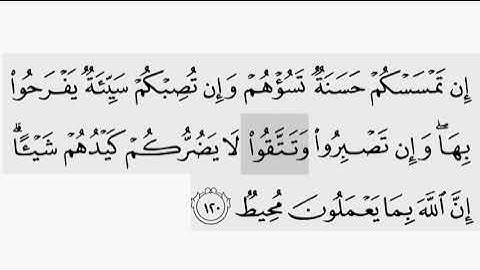 إِن تَمْسَسْكُمْ حَسَنَةٌ تَسُؤْهُمْ وَإِن تُصِبْكُمْ سَيِّئَةٌ يَفْرَحُوا۟
بِهَا ۖ وَإِن تَصْبِرُوا۟ وَتَتَّقُوا۟ لَا يَضُرُّكُمْ كَيْدُهُمْ شَيْـًٔا ۗ
إِنَّ ٱللَّهَ بِمَا يَعْمَلُونَ مُحِيطٌ ١٢٠